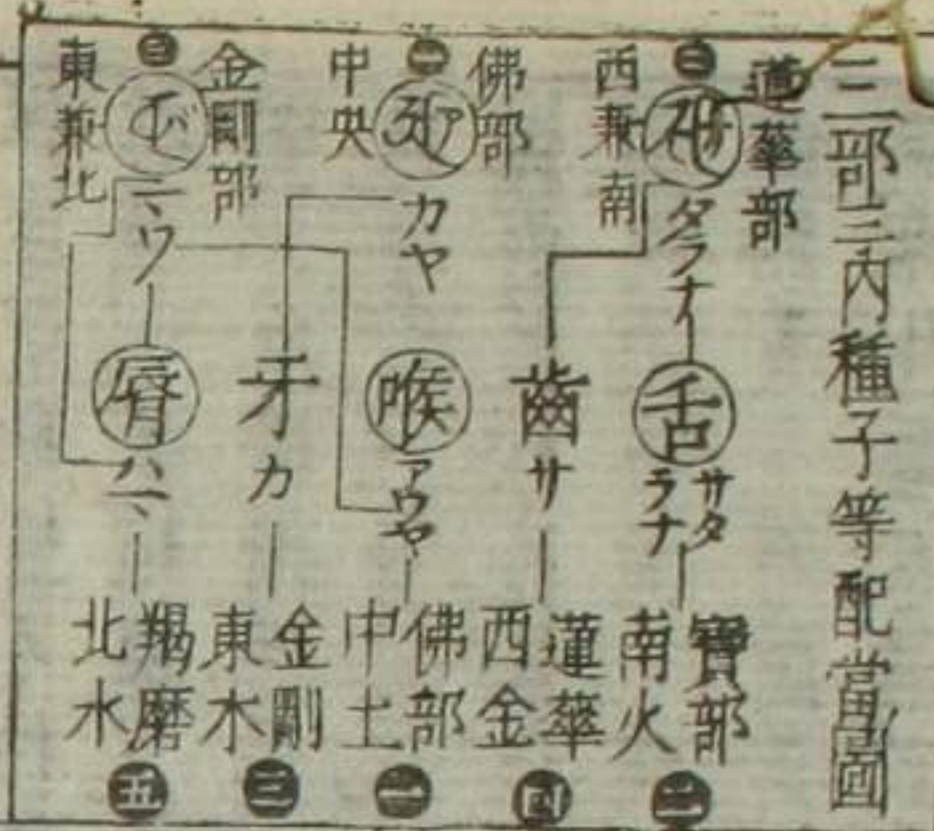 三部三内種子等配當圖
蓮華部
三
サ
西兼南
タラナ
佛部
一
ア
中央
カヤ
金剛部
バ
東兼北
ワ
舌
サタ
ラナ
齒
サ
喉
アウヤ
牙
カ
脣
ハマ
寶部
南火
蓮華
西金
四
佛部
中土
一
金剛
東木
羯磨
北水
五